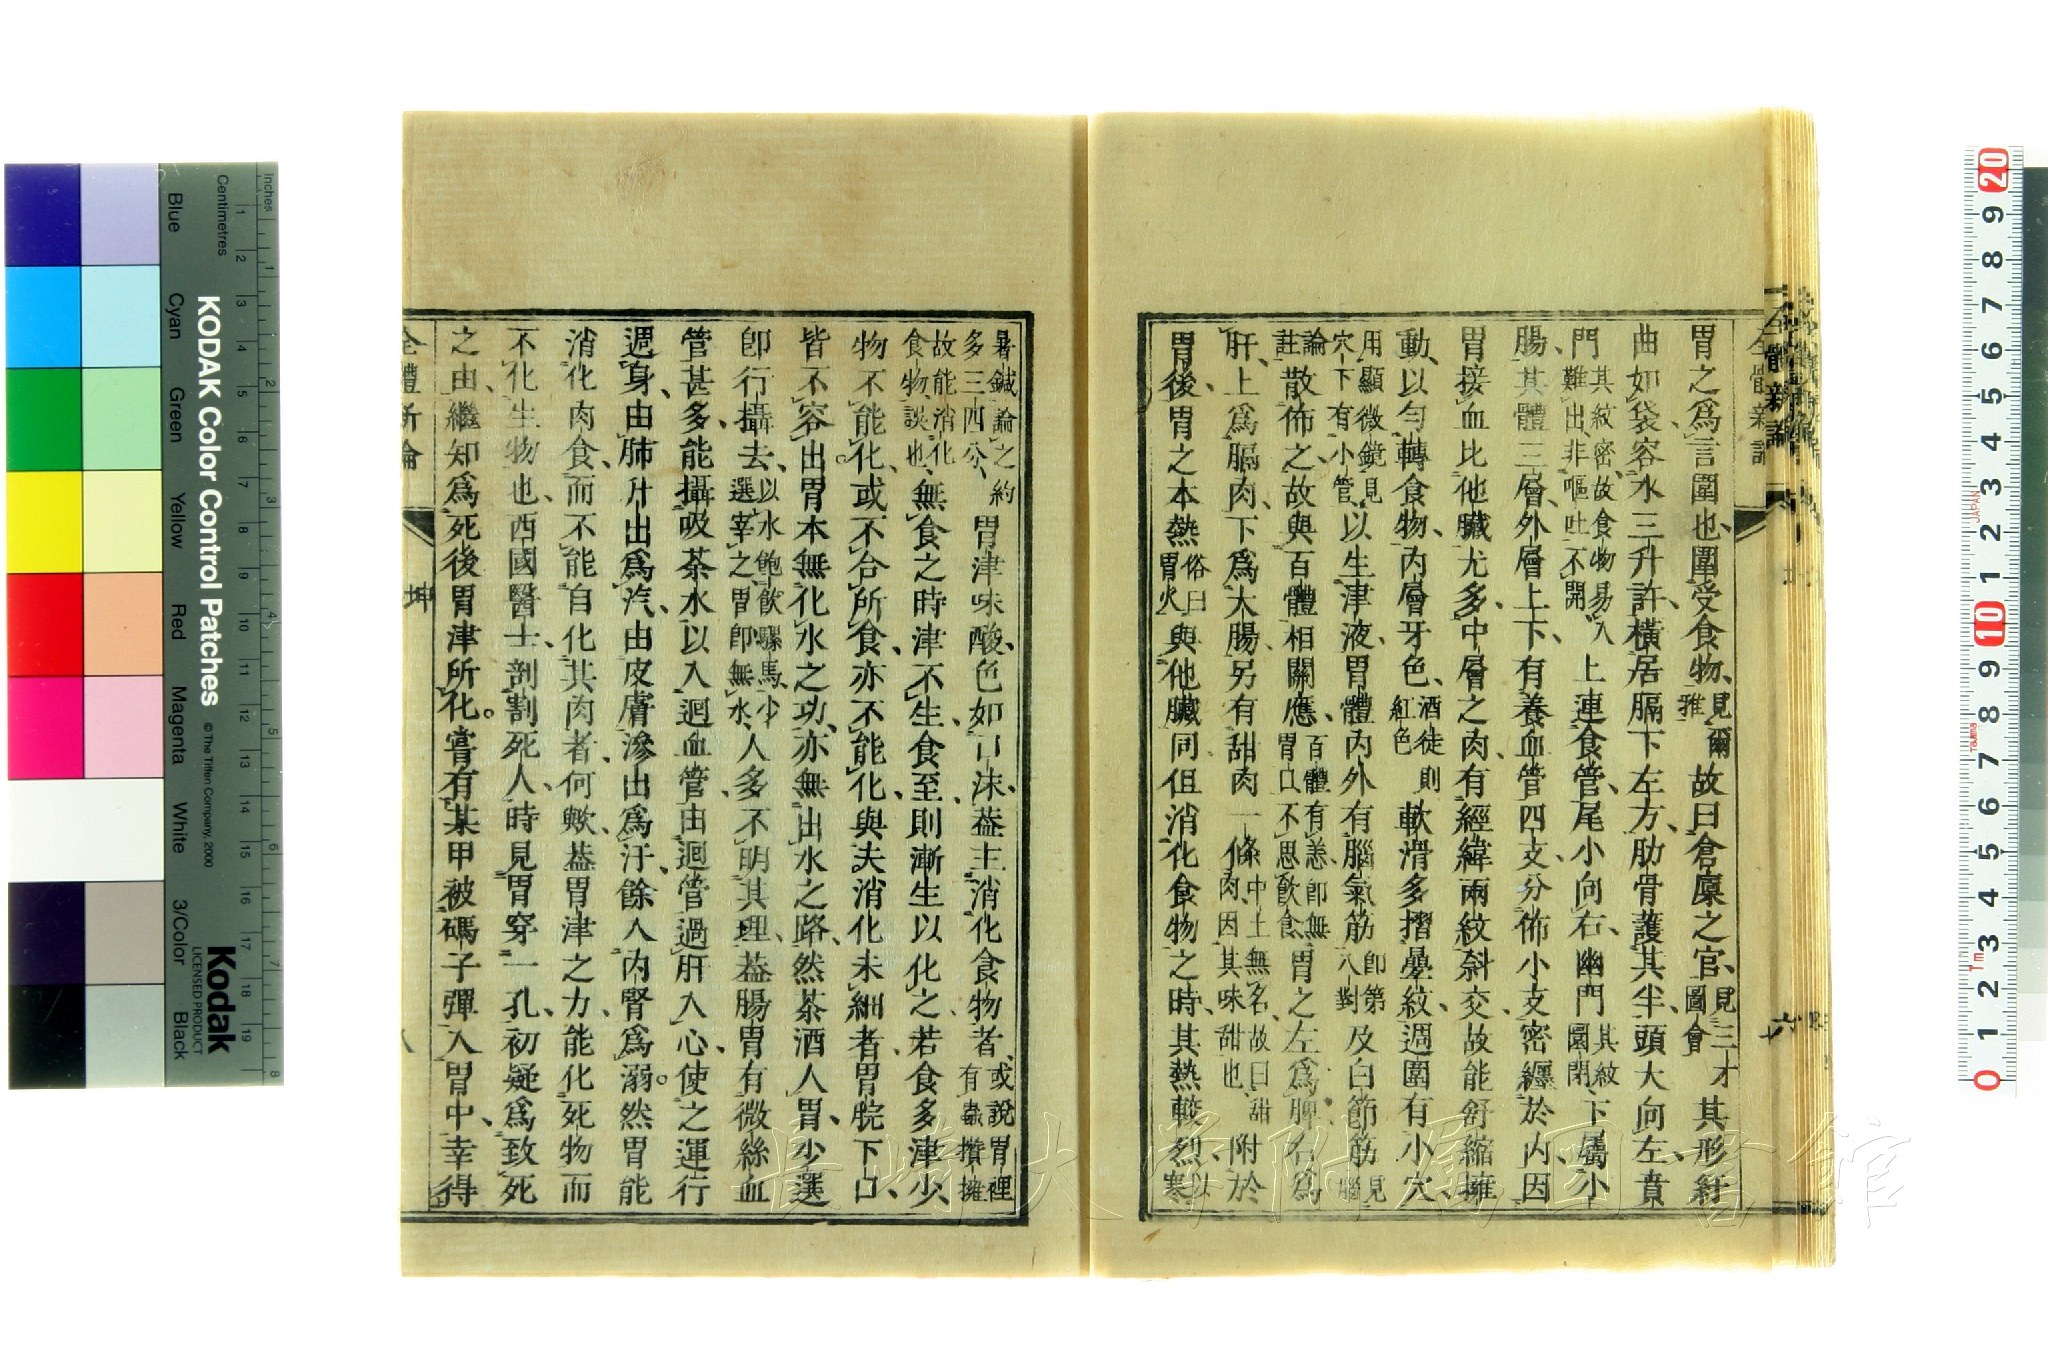 胃之爲言圍也、圍受食物、見爾雅故曰倉廩之官、見三才圖會其形紆
曲如袋、容水三升許、橫居膈下、左方肋骨護其半、頭大向左、賁
門其紋密、故食物易入難出、非嘔吐不開上連食管、尾小向右、幽門其紋圜閉、下屬小
腸、其體三層、外層上下、有養血管四支、分佈小支、密纒於內、因
胃接血比他臟尤多、中層之肉、有經緯兩紋斜交、故能舒縮擁
動、以勻轉食物、內層牙色、酒徒則紅色軟滑多摺疊紋、週圍有小穴、
用顯微鏡見穴下有小管、以生津液、胃體內外有腦氣筋卽第八對及白節筋見腦
論註散佈之、故與百體相關應、百體有恙、卽無胃口、不思飲食胃之左爲脾、右爲
肝、上爲膈肉、下爲大腸、另有甜肉一條、中土無名、故曰甜肉、因其味甜也、附於
胃後、胃之本熱俗曰胃火與他臟同、但消化食物之時、其熱較烈、以寒
暑鍼論之約多三四分、胃津味酸、色如口沫、葢主消化食物者、或說胃裡有蟲攢擁
故能消化食物、誤也、無食之時、津不生、食至則漸生以化之、若食多津少、
物不能化、或不合所食、亦不能化、與夫消化未細者、胃脘下口、
皆不容出、胃本無化水之功、亦無出水之路、然茶酒入胃、少選
卽行攝去、以水飽飲騾馬、少選宰之、胃卽無水、人多不明其理、葢腸胃有微絲血
管甚多、能攝吸茶水、以入迴血管、由迴管過肝入心、使之運行
週身、由肺升出爲汽、由皮膚滲出爲汗、餘入內腎爲溺。然胃能
消化肉食、而不能自化其肉者何歟、葢胃津之力、能化死物、而
不化生物也、西國醫士、剖割死人、時見胃穿一孔、初疑爲致死
之由、繼知爲死後胃津所化。嘗有某甲被碼子彈入胃中、幸得
全體新論
坤
全體新論
六
KODAK Color Control Patches
© The Tiffen Company, 2000
Kodak
LICENSED PRODUCT
inches
Centimetres
Blue
Cyan
Green
Yellow
Red
Magenta
White
3/Color
Black
長崎大学附属図書館
JAPAN